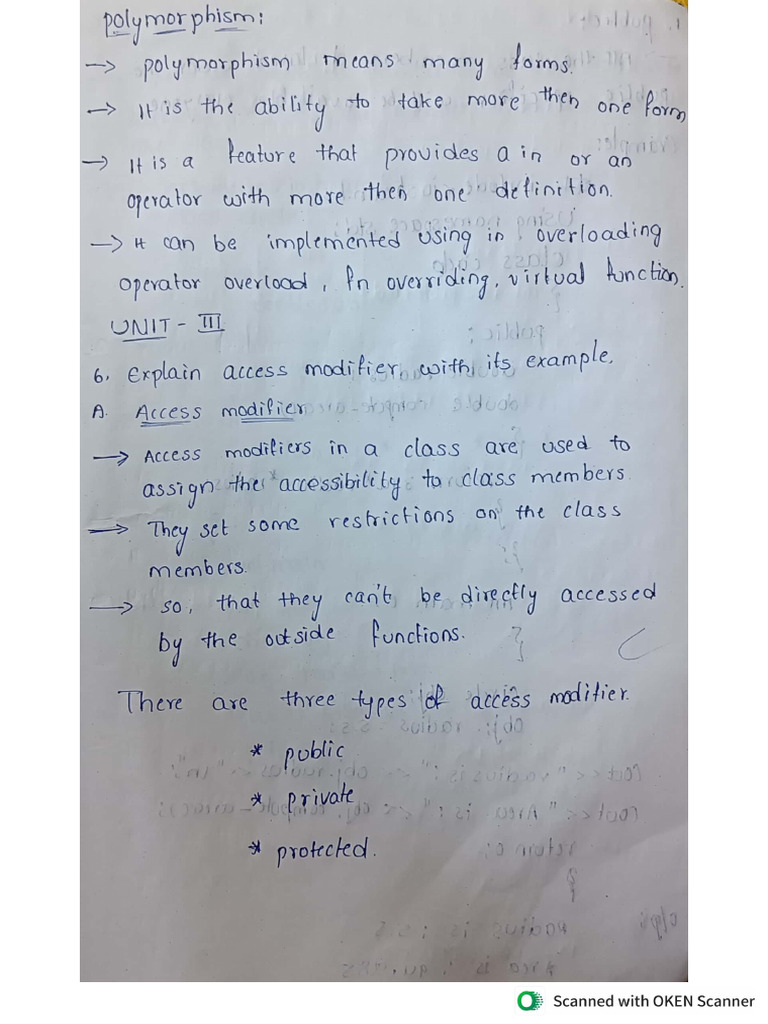 polymorphism:
→ polymorphism means many forms.
→ It is the ability to take more then one form
→ It is a feature that provides a in or an
operator with more then one definition.
→ It can be implemented using in overloading
operator overload, fn overriding, virtual function.
UNIT - III
6. Explain access modifier with its example.
A. Access modifier
→ Access modifiers in a class are used to
assign the accessibility to class members
→ They set some restrictions on the class
members.
→ so, that they can't be directly accessed
by the outside functions.
There are three types of access modifier.
* public
* private
* protected.
Scanned with OKEN Scanner